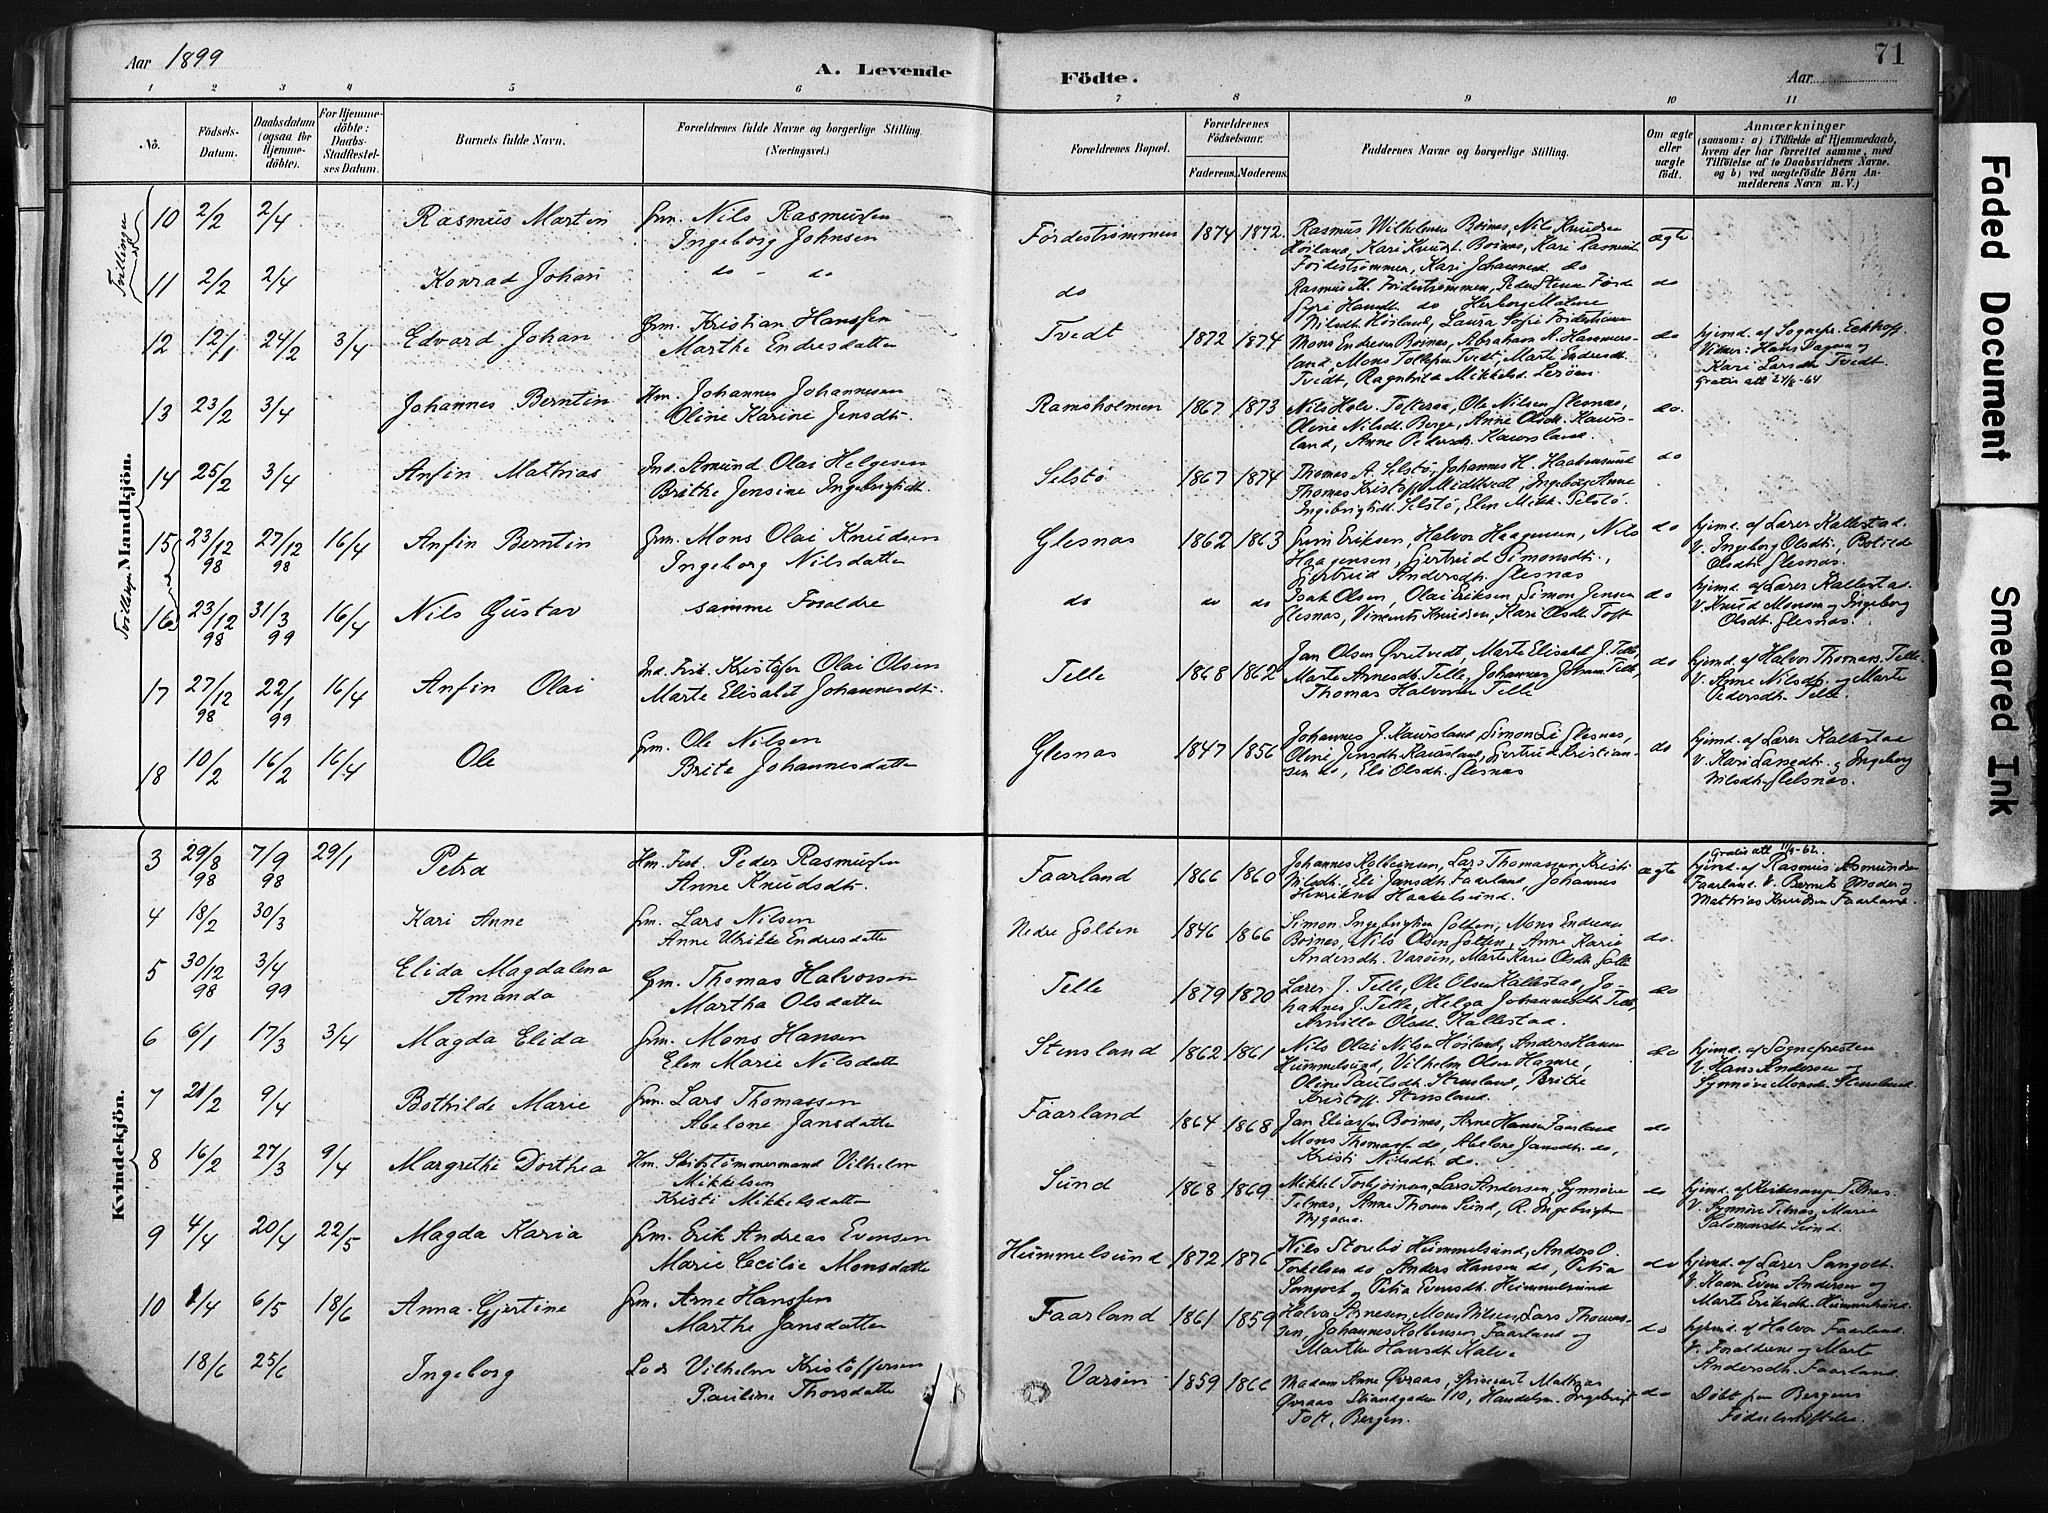 Aar 1899
A. Levende
Födte.
71
Aar
1 2 3 4 5 6 7 8 9 10 11
No.
Födsels-
Datum.
Daabsdatum
(ogsaa för
Hjemme-
döbte).
For Hjemme-
döbte:
Daabs-
Stadfæstel-
ses Datum.
Barnets fulde Navn.
Forældrenes fulde Navne og borgerlige Stilling.
(Næringsvei.)
Forældrenes Bopæl.
Forældrenes
Födselsaar.
Faderens. Moderens.
Faddernes Navne og borgerlige Stilling.
Om ægte
eller
uægte
födt.
Anmærkninger
(saasom: a) i Tilfælde af Hjemmedaab,
hvem der har forrettet samme, med
Tilföielse af to Daabsvidners Navne.
og b) ved uægtefödte Börn An-
melderens Navn m. V.)
Mandkjön.
Kvindekjön.
Tvillinger
10 2/2 2/4 Rasmus Martin Grm. Nils Rasmussen
Ingeborg Johnsen
Førdestrømmen 1874 1872 Rasmus Wilhelmsen Boinæs, Nils Knudsen
Høiland, Kari Knudt. Boinæs, Kari Rasmusd.
Førdestrømmen, Kari Johannesd. do
ægte
11 2/2 2/4 Konrad Johan do - do
do Rasmus M. Førdestrømmen, Peder Stena Førde
do Herborg Malene
Nilsdt. Høiland, Laura Sofie Førdestrømmen
do
12 12/1 24/2 3/4 Edvard Johan Grm. Kristian Hanssen
Marthe Endresdatter
Tvedt 1872 1874 Mons Endresen Boinæs, Abraham A. Hammers-
land, Mons Tollefsen Tvedt, Marte Endresdt.
Tvedt, Ragnhilda Mikkelsd. Lerøen
do hjemd. af Sognepr. Eckhoff.
Vidner: Hans Dagsen og
Kari Larsdt. Tvedt.
Gratis att 24/6-64
13 23/2 3/4 Johannes Berntin Hm. Johannes Johannesen
Oline Karine Jensdt.
Ramsholmen 1867 1873 Nils Halv. Tofterøa, Ole Nilsen Glesnæs,
Oline Nilsdt. Berge, Anne Olsdt. Kaurs-
land, Anne Pedersdt. Kaursland.
do.
14 25/2 3/4 Anfin Mathias Ind. Amund Olai Helgesen
Brithe Jensine Ingebrigtsdt.
Selstø 1867 1874 Thomas A. Selstø, Johannes H. Haakensund
Thomas Kristoff. Midttvedt, Ingeborg Anne
Ingebrigtsdt. Selstø, Elen Mikk. Selstø.
do
15 23/12 98 27/12 98 16/4 Anfin Berntin Grm. Mons Olai Knudsen
Ingeborg Nilsdatter
Glesnæs 1862 1863 Eriksen, Halvor Haagensen, Nils
Haagensen, Gertrud Simonsdt.,
Gjertrud Andersdt. Glesnæs
do hjemd. af Lærer Kallestad.
V. Ingeborg Olsdt., Botilde
Olsdt. Glesnæs.
16 23/12 98 31/3 99 16/4 Nils Gustav samme Foreldre
do do do Isak Olsen, Olai Eriksen, Simon Jensen
Glesnæs, Vincents Knudsen, Kari Olsdt. Toft
do hjemd. af Lærer Kallestad.
V. Knud Monsen og Ingeborg
Olsdt. Glesnæs.
17 27/12 98 22/1 99 16/4 Anfin Olai Ind. Frik. Kristofer Olai Olsen
Marte Elisabet Johannesdt.
Telle 1868 1862 Jan Olsen Øvretvedt, Marte Elisabet J. Telle,
Marte Arnesdt. Telle, Johannes Johann. Telle,
Thomas Halvorsen Telle
do hjemd. af Halvor Thomas. Telle.
V. Anne Nilsdt. og Marte
Pedersdt. Telle.
18 10/2 16/2 16/4 Ole Grm. Ole Nilsen
Brite Johannesdatter
Glesnæs 1847 1856 Johannes J. Kaursland, Simon Glesnæs,
Oline Jensdt. Kaursland, Gertrud Kristian-
sen do, Eli Olsdt. Glesnæs
do hjemd. af Lærer Kallestad
V. Kari Larsdt. og Ingeborg
Nilsdt. Glesnæs.
3 29/8 98 7/9 98 29/1 Petra Hm. Fisk. Peder Rasmussen
Anne Knudsdt.
Faarland 1866 1860 Johannes Kolbeinsen, Lars Thomassen, Kristi
Nilsdt., Eli Jansdt. Faarland, Johannes
Henriksen Haakelsund.
ægte Gratis att 11/9-62.
hjemd. af Rasmus Asmundsen
Faarland. V. Barnets Moder og
Mathias Knudsen Faarland.
4 18/2 30/3 Kari Anne Grm. Lars Nilsen
Anne Ulrikke Endresdatter
Nedre Golten 1846 1866 Simon Ingebrigtsen Golten, Mons Endresen
Boinæs, Nils Olsen Golten, Anne Karie
Andersdt. Varøen, Marte Karie Olsdt. Golte
do.
5 30/12 98 3/4 99 Elida Magdalena
Amanda
Grm. Thomas Halvorsen
Martha Olsdatter
Telle 1879 1870 Lærer J. Telle, Ole Olsen Kallestad, Jo-
hannes J. Telle, Helga Johannesdt. Telle,
Arnilla Olsdt. Kallestad.
do
6 6/1 17/3 3/4 Magda Elida Grm. Mons Hansen
Elen Marie Nilsdatter
Stensland 1862 1861 Nils Olai Nilsen Høiland, Anders Hansen
Hummelsund, Vilhelm Olsen Hamre,
Oline Paulsdt. Stensland, Brithe
Kristoff. Stensland.
do hjemd. af Sognepresten
V. Hans Andersen og
Synnøve Monsdt. Stensland.
7 21/2 9/4 Bothilde Marie Grm. Lars Thomassen
Abelone Jansdatter
Faarland 1864 1868 Jan Eliassen Boinæs, Arne Hansen Faarland
Mons Thomass. do, Abelone Jansdt. do,
Kristi Nilsdt. do.
do
8 16/2 27/3 9/4 Margrethe Dorthea Hm. Skibstømmermand Vilhelm
Mikkelsen
Kristi Mikkelsdatter
Sund 1868 1869 Mikkel Torbjørnsen, Lars Andersen, Synnøve
Telnæs, Anne Thorsen Sund, R. Ingebrigtsen
Nygaard.
do hjemd. af Kirkesanger Telnæs.
V. Synnøve Telnæs, Marie
Salomonsdt. Sund.
9 4/4 20/4 22/5 Magda Karia Grm. Erik Andreas Evensen
Marie Cecilie Monsdatter
Hummelsund 1872 1876 Nils Storebø Hummelsund, Anders O.
Torkelsen do, Anders Hansen do, Petra
Sangolt og Petra Evensdt. Hummelsund
do hjemd. af Lærer Sangolt.
V. Kaare Even Andersen og
Marte Eriksdt. Hummelsund.
10 1/4 6/5 18/6 Anna Gjertine Grm. Arne Hanssen
Marthe Jansdatter
Faarland 1861 1859 Halvor Arnesen, Mons Nilsen, Lars Thomas-
sen, Johannes Kolbensen Faarland og
Marthe Hansdt. Kalve
do hjemd. af Halvor Faarland.
V. Foraldrene og Marte
Andersdt. Faarland.
18/6 25/6 Ingeborg Lods Vilhelm Kristoffersen
Pauline Thorsdatter
Varøen 1859 1866 Madam Anne Øvraas, Mathias
Øvraas Strandgaden 110, Handelsm. Ingebrigt
Toft, Bergen.
do Døbt paa Bergens
Fødselsstiftelse.
Faded Document
Smeared Ink